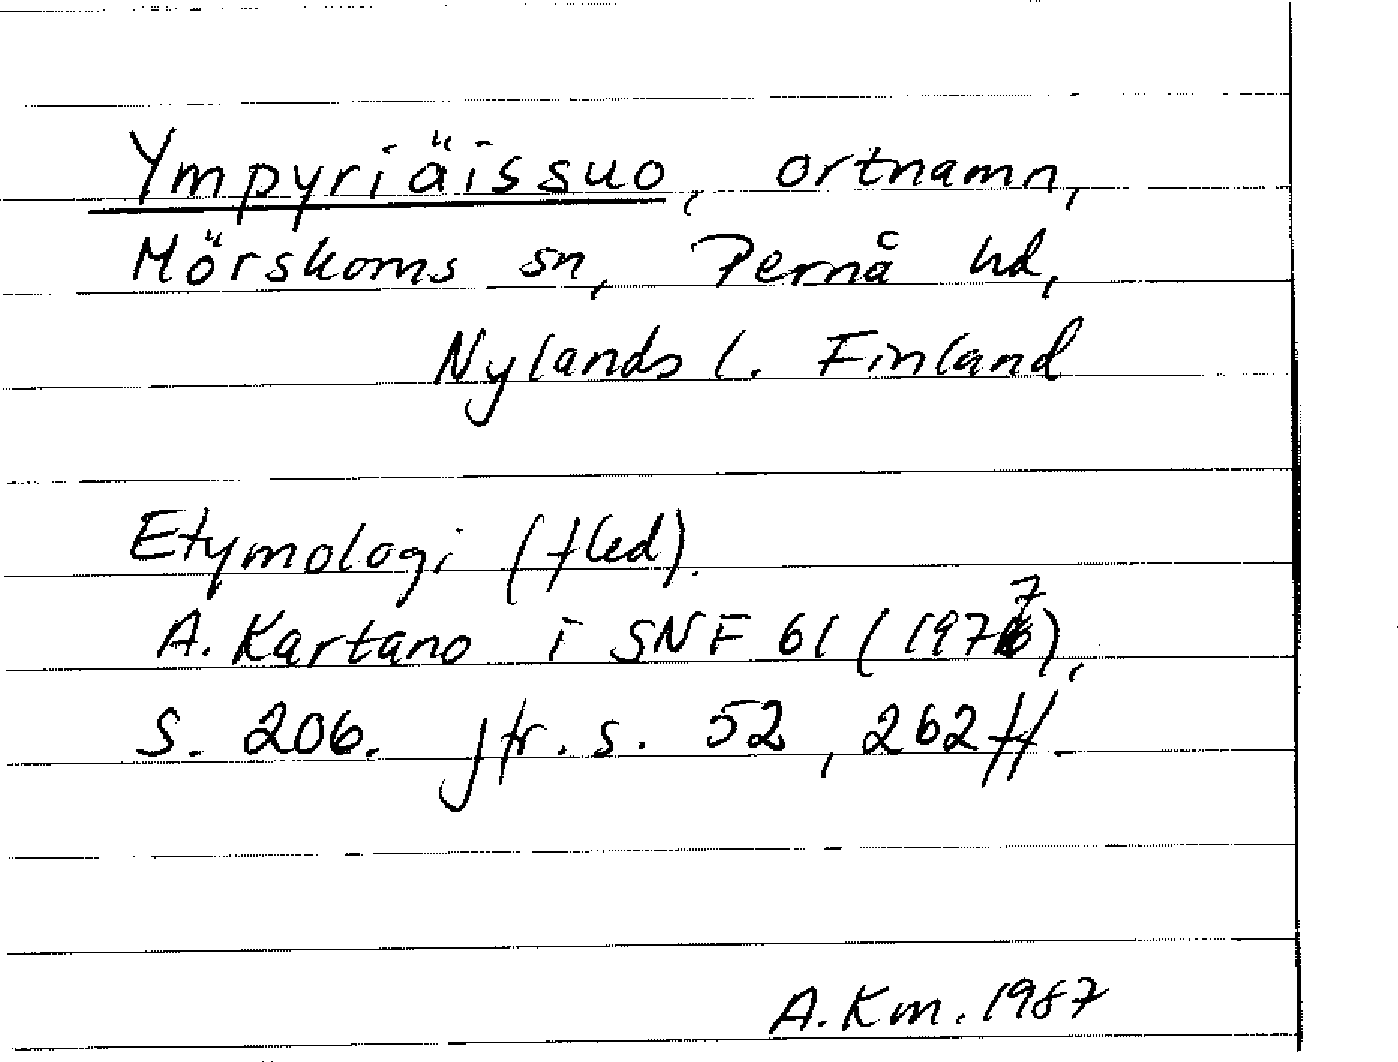 Ympyriäissuo, ortnamn,
Mörskoms sn, Pernå hd,
Nylands l. Finland
Etymologi (fled).
A. Kartano i SNF 61 (1977),
S. 206. Jfr. s. 52, 262 ff.
A. Km. 1987